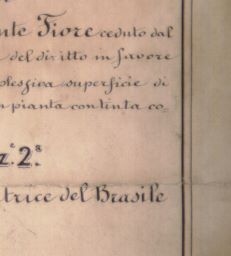 nte Fiore ceduto dal
del diritto in favore
plessiva superficie di
n pianta continta co-
z.ᵉ 2.ᵃ
trice del Brasile